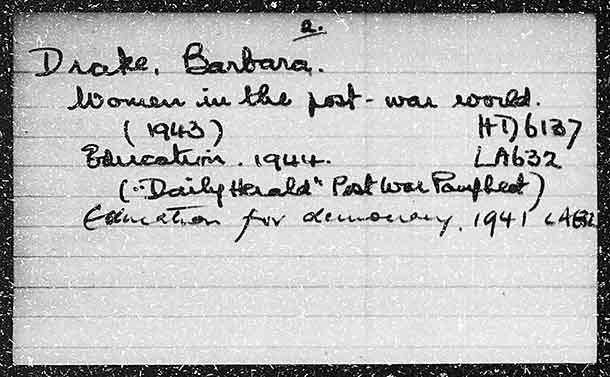 2.
Drake, Barbara.
Women in the post-war world.
(1943) HD6137
Education. 1944. LA632
("Daily Herald" Post War Pamphlet)
Education for democracy. 1941 LA632